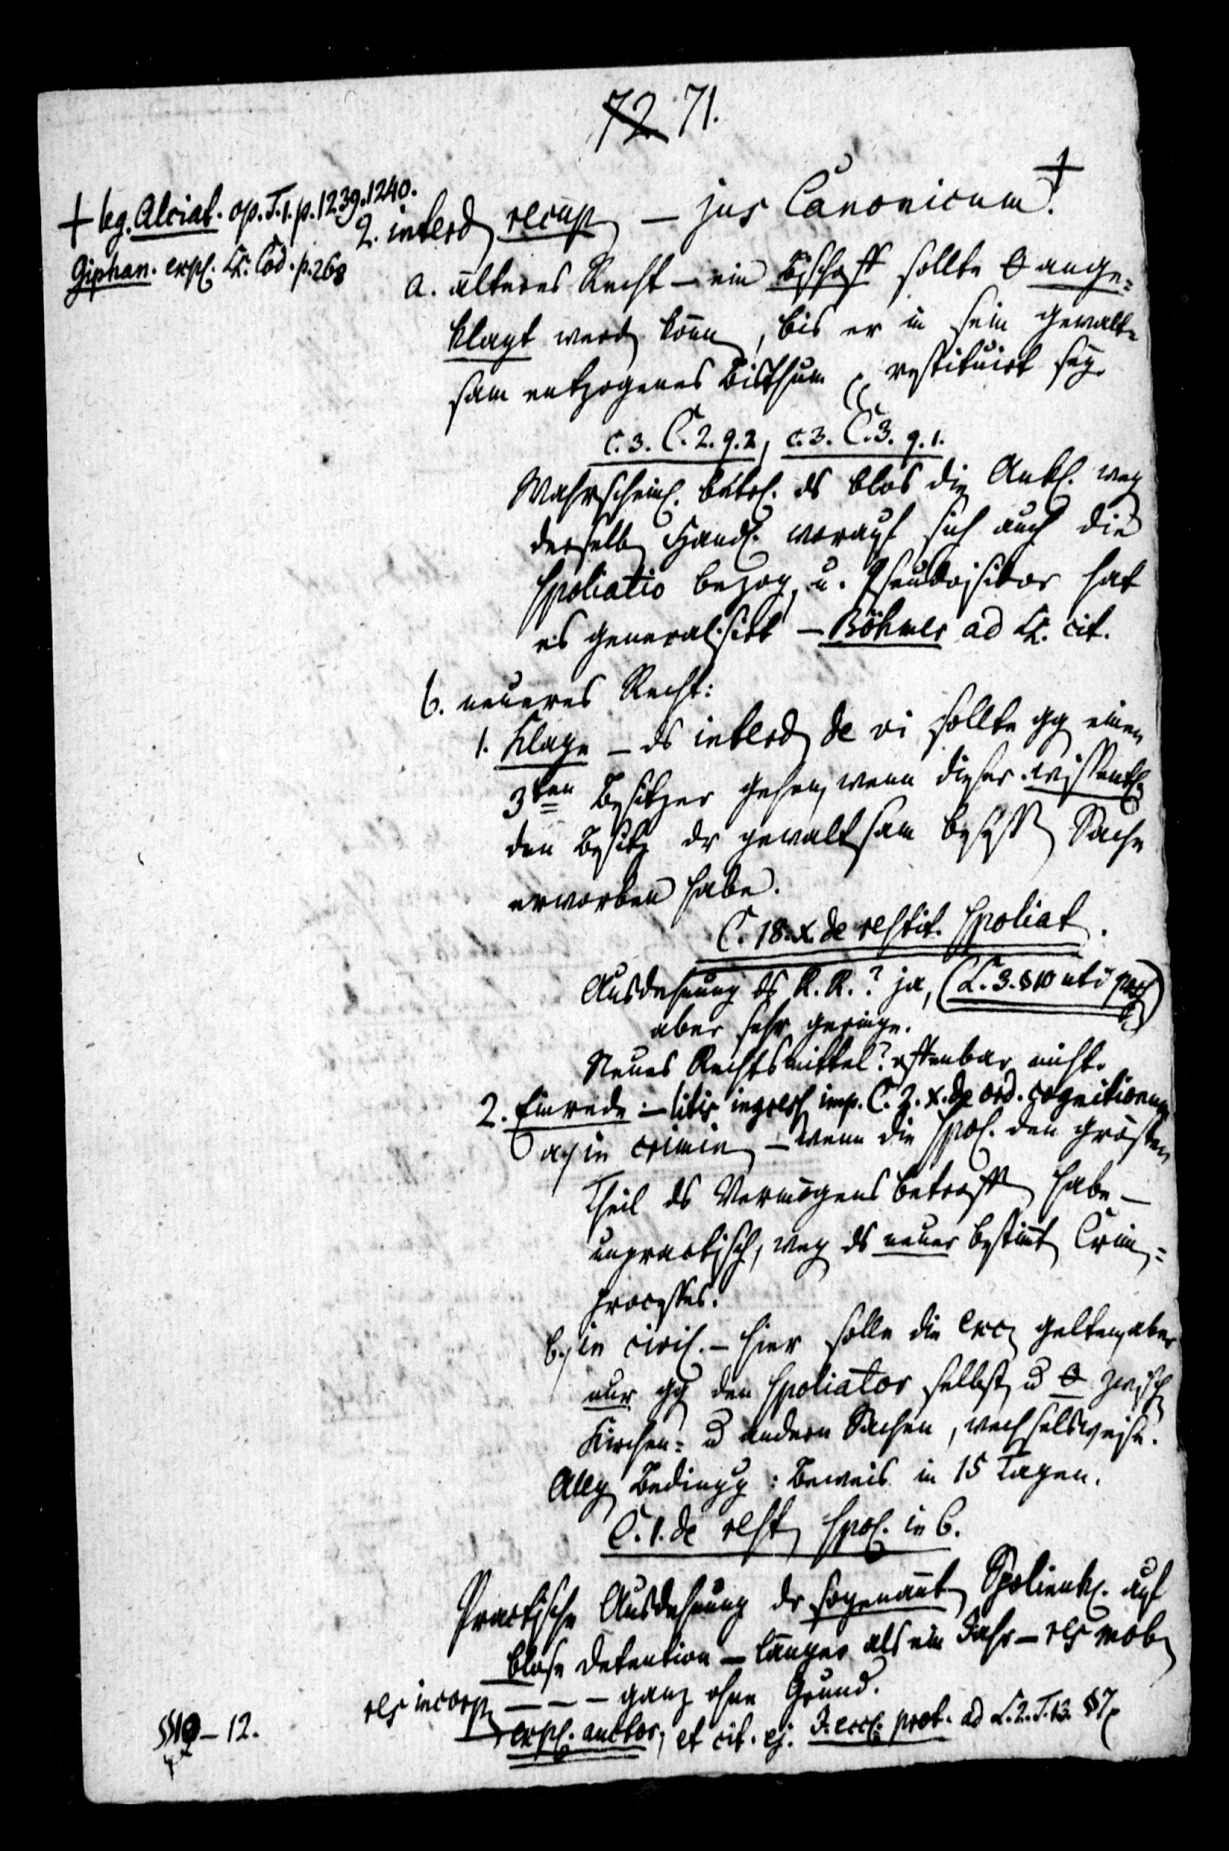 72 71.
+ leg. Alciat. op. T.1. p. 1239. 1240.
Giphan. expl. LL. Cod. p. 268
2. interd recup — jus Canonicum. +
a. älteres Recht — ein Bischoff sollte 0 ange=
klagt werd könn, bis er in sein gewalt=
sam entzogenes Bisthum restituirt sey.
c. 3. C. 2. q. 2, c. 3. C. 3. q. 1.
Wahrscheinl. betrf. ds blos die Ankl. weg
derselb Handl. worauf sich auch die
Spoliatio bezog, u. Pseudoisidor hat
es generalisirt — Böhmer ad LL. cit.
b. neueres Recht:
1. Klage — ds interd de vi sollte gg einen
3ten Besitzer gehen, wenn dieser wissentl.
den Besitz dr gewaltsam besess Sache
erworben habe.
C. 18. X. de restit. spoliat.
Ausdehnung ds R. R.? ja, (L. 3. § 10 uti poss)
aber sehr geringe.
Neues Rechtsmittel? offenbar nicht.
2. Einrede — litis ingress imp. C. 2. X. de ord. cognitionum
a) in crimin — wenn die Spol. den größten
Theil ds Vermögens betroff habe —
unpractisch, weg ds neuer bestimt Crim=
processes.
b.) in civil. — hier solle die exc gelten, aber
nur gg den Spoliator selbst, u 0 zwisch
Kirchen= u andern Sachen, wechselsweise.
Allg Bedingg: Beweis in 15 Tagen.
C. 1. de rest spol. in 6.
Practische Ausdehnung dr sogenannt Spolienkl. auf
blose Detention — länger als ein Jahr — res mob
res incorp — — — ganz ohne Grund.
expl. auctor, et cit. ej. J. eccl. prot. ad L. 2. T. 13. § 7
§§ 10 — 12.